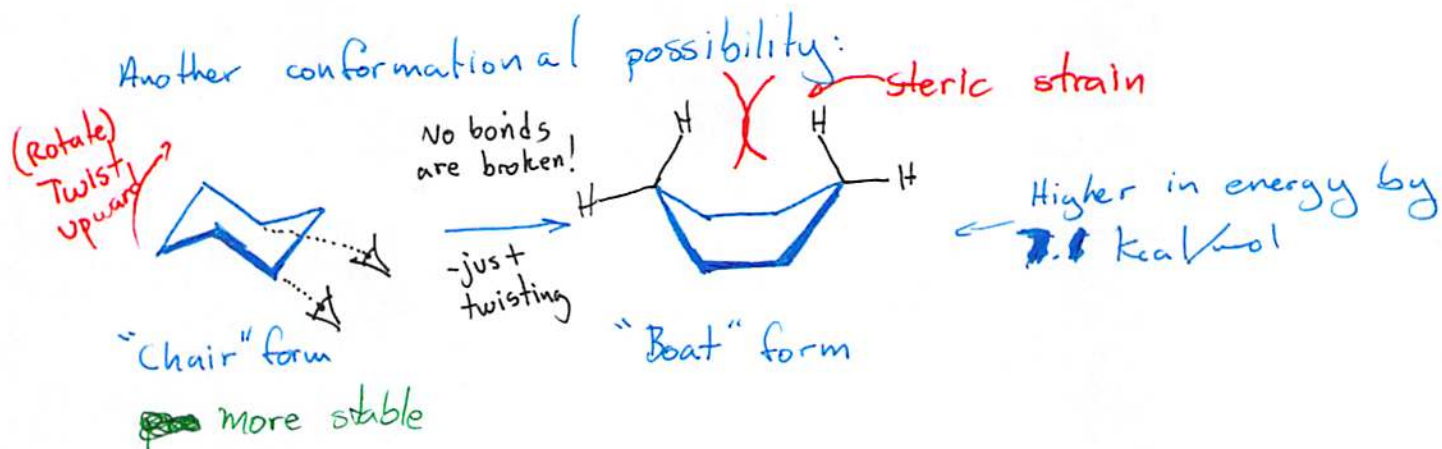 Another conformational possibility:
steric strain
(Rotate)
Twist
upward
No bonds
are broken!
H
H
H
H
-just
twisting
Higher in energy by
kcal/mol
"Chair" form
"Boat" form
more stable